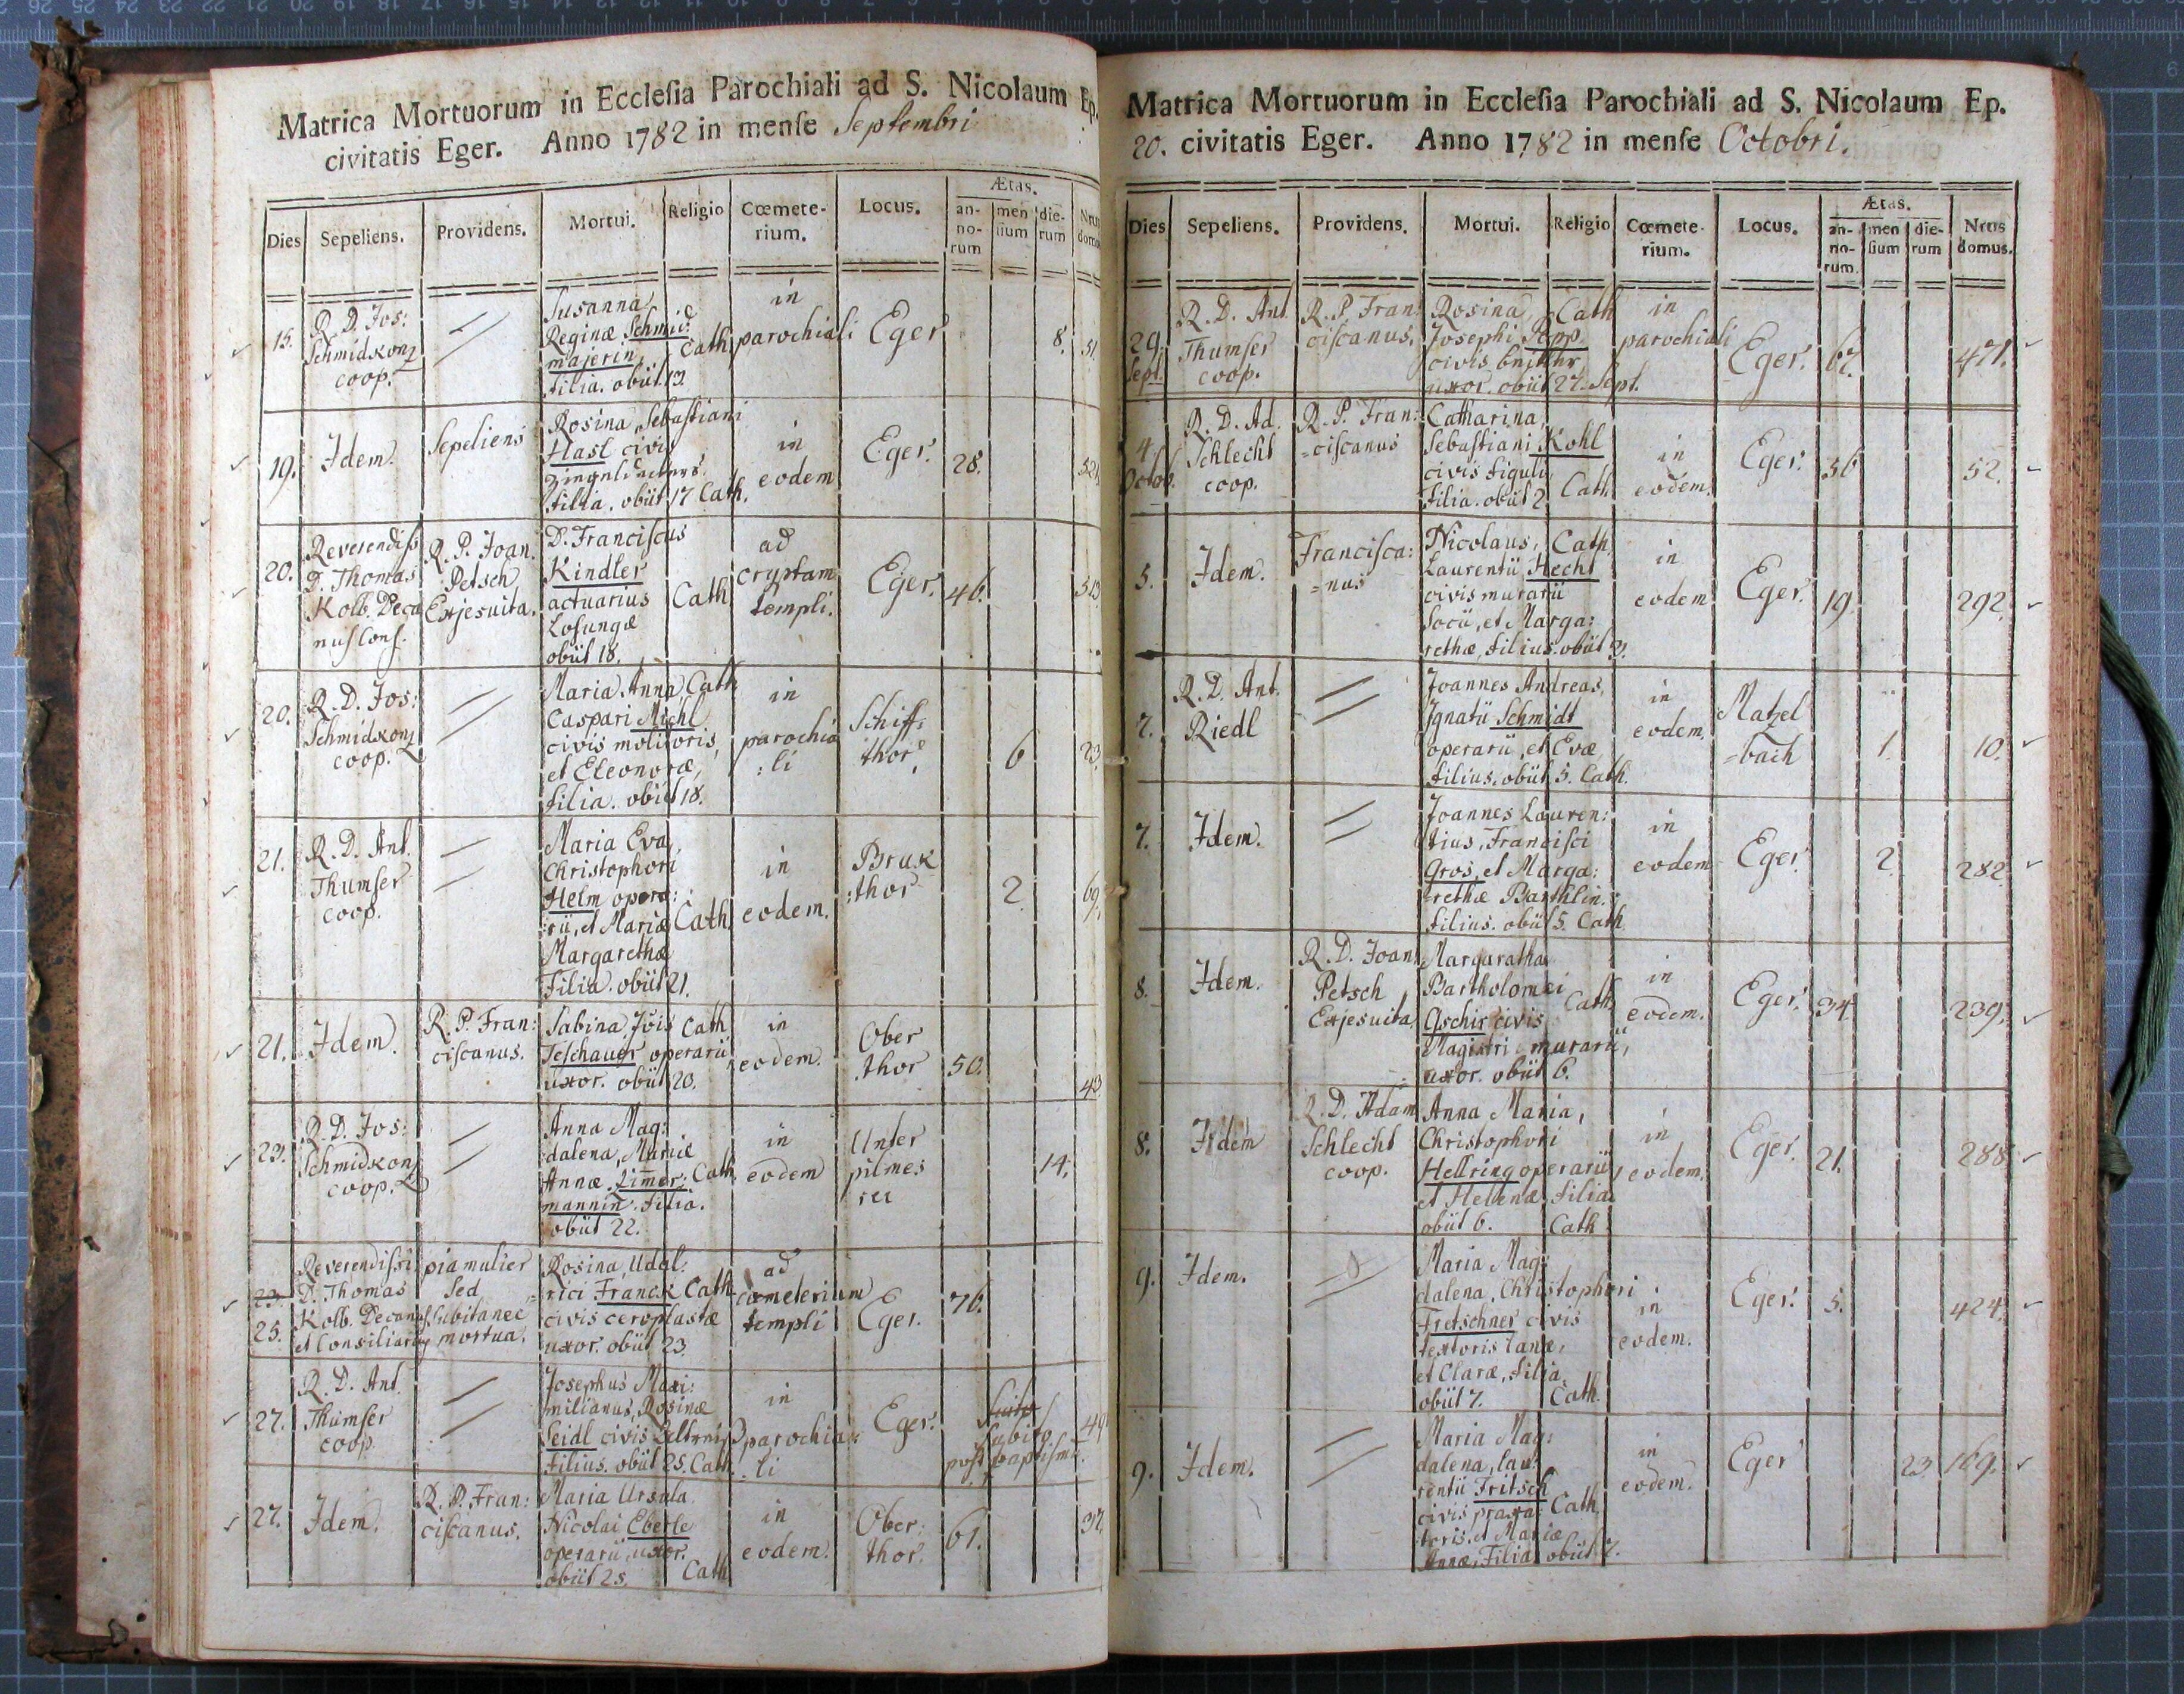 Matrica Mortuorum in Ecclesia Parochiali ad S. Nicolaum Ep.
civitatis Eger. Anno 1782 in mense Septembri
Dies Sepeliens. Providens. Mortui. Religio Cœmeterium. Locus. Ætas. annorum mensium dierum Nrus domus
15. R. D. Jos: Schmidkonz coop.
Susanna,
Reginæ Schmid:
majerin,
filia. obiit 13.
Cath.
in parochiali
Eger
8.
51.
19. Idem. Sepeliens
Rosina, Sebastiani
Hasl civis
filia. obiit 17 Cath.
in eodem
Eger.
28.
20. Reverendiss D. Thomas Kolb. Decanus Cons.
R. P. Joan. Petsch Exjesuita.
D. Franciscus
Kindler
actuarius
Losungæ
obiit 18.
Cath
ad cryptam templi.
Eger.
46.
20. R. D. Jos: Schmidkonz coop.
Maria Anna, Cath
Caspari Michl
civis molitoris,
et Eleonoræ,
filia. obiit 18.
in parochia:li
Schiff:thor.
6
23.
21. R. D. Ant. Thumser coop.
Maria Eva,
Christophori
Helm opera:
rii, et Mariæ Cath.
Margarethæ
Filia. obiit 21.
in eodem.
Bruk:thor
2.
69.
21. Idem.
R. P. Fran:ciscanus.
Sabina, Jois Cath
Teschauer operarii
uxor. obiit 20.
in eodem.
Ober thor
50.
43
23. R. D. Jos: Schmidkonz coop.
Anna Mag:
dalena, Mariæ
Annæ Zimer: Cath.
mannin. Filia.
obiit 22.
in eodem
Unter pilmesreu
14.
23. 25. Reverendissi: D. Thomas Kolb. Decanus et Consiliarius
pia mulier sed subitanee mortua.
Rosina, Udal:
rici Franck Cath.
civis ceroplastæ
uxor. obiit 23.
ad cœmeterium templi
Eger.
76.
27. R. D. Ant. Thumser coop.
Josephus Maxi:
milianus, Rosinæ
Seidl civis
filius. obiit 25. Cath.
in parochia:li
Eger.
subito post baptism.
49
27. Idem.
R. P. Fran:ciscanus.
Maria Ursula
Nicolai Eberle
operarii, uxor.
obiit 25. Cath
in eodem.
Ober:thor.
61.
37.
Matrica Mortuorum in Ecclesia Parochiali ad S. Nicolaum Ep.
20. civitatis Eger. Anno 1782 in mense Octobri.
Dies Sepeliens. Providens. Mortui. Religio Cœmeterium. Locus. Ætas. annorum. mensium dierum Nrus domus.
29. Sept. R. D. Ant. Thumser coop.
R. P. Fran:ciscanus.
Rosina, Cath
Josephi Popp.
civis
uxor. obiit 27. Sept.
in parochiali
Eger.
67.
471.
4 Octob. R. D. Ad. Schlecht coop.
R. P. Fran:=ciscanus
Catharina,
Sebastiani Kohl
civis figuli
filia. obiit 2. Cath.
in eodem.
Eger.
36
52.
5. Idem.
Francisca:=nus
Nicolaus, Cath.
Laurentii Hecht
civis murarii
Socii, et Marga:
rethæ, filius. obiit 3.
in eodem
Eger.
19.
292.
7. R. D. Ant. Riedl
Joannes Andreas,
Ignatii Schmidt
operarii, et Evæ
filius. obiit 5. Cath.
in eodem.
Matzel=bach
1.
10.
7. Idem.
Joannes Lauren:
tius, Francisci
Gros, et Marga:
rethæ Barthlin.
filius. obiit 5. Cath
in eodem
Eger.
2.
282.
8. Idem.
R. D. Joan. Petsch Exjesuita.
Margaratha
Bartholomæi Cath.
Gschir civis
Magistri murarii,
uxor. obiit 6.
in eodem.
Eger.
34.
239.
8. Idem
R. D. Adam Schlecht coop.
Anna Maria,
Christophori
Hellring operarii,
et Helenæ, filia
obiit 6. Cath
in eodem.
Eger.
21.
288.
9. Idem.
Maria Mag:
dalena, Christophori
Fretschner civis
textoris lanæ,
et Claræ, filia.
obiit 7. Cath.
in eodem.
Eger.
5.
424.
9. Idem.
Maria Mag:
dalena, Lau:
rentii Fritsch
civis Cath.
toris, et Mariæ
Annæ, Filia obiit 7.
in eodem.
Eger
23.
169.